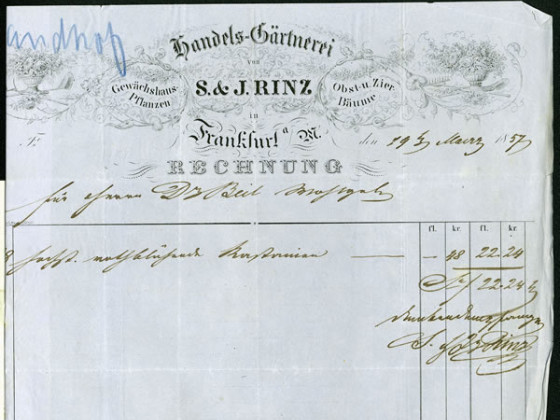 andhof
Handels-Gärtnerei
von
S. & J. RINZ
Gewächshaus-
Pflanzen
Obst- u. Zier
Bäume
in
Frankfurt a/M.
den 19 März 1857
RECHNUNG
für Herrn Dr Beil Wohlgeb
fl. kr. fl. kr.
8 hochst. rothblühende Kastanien — — 48 22.24
22.24
S. & J. Rinz